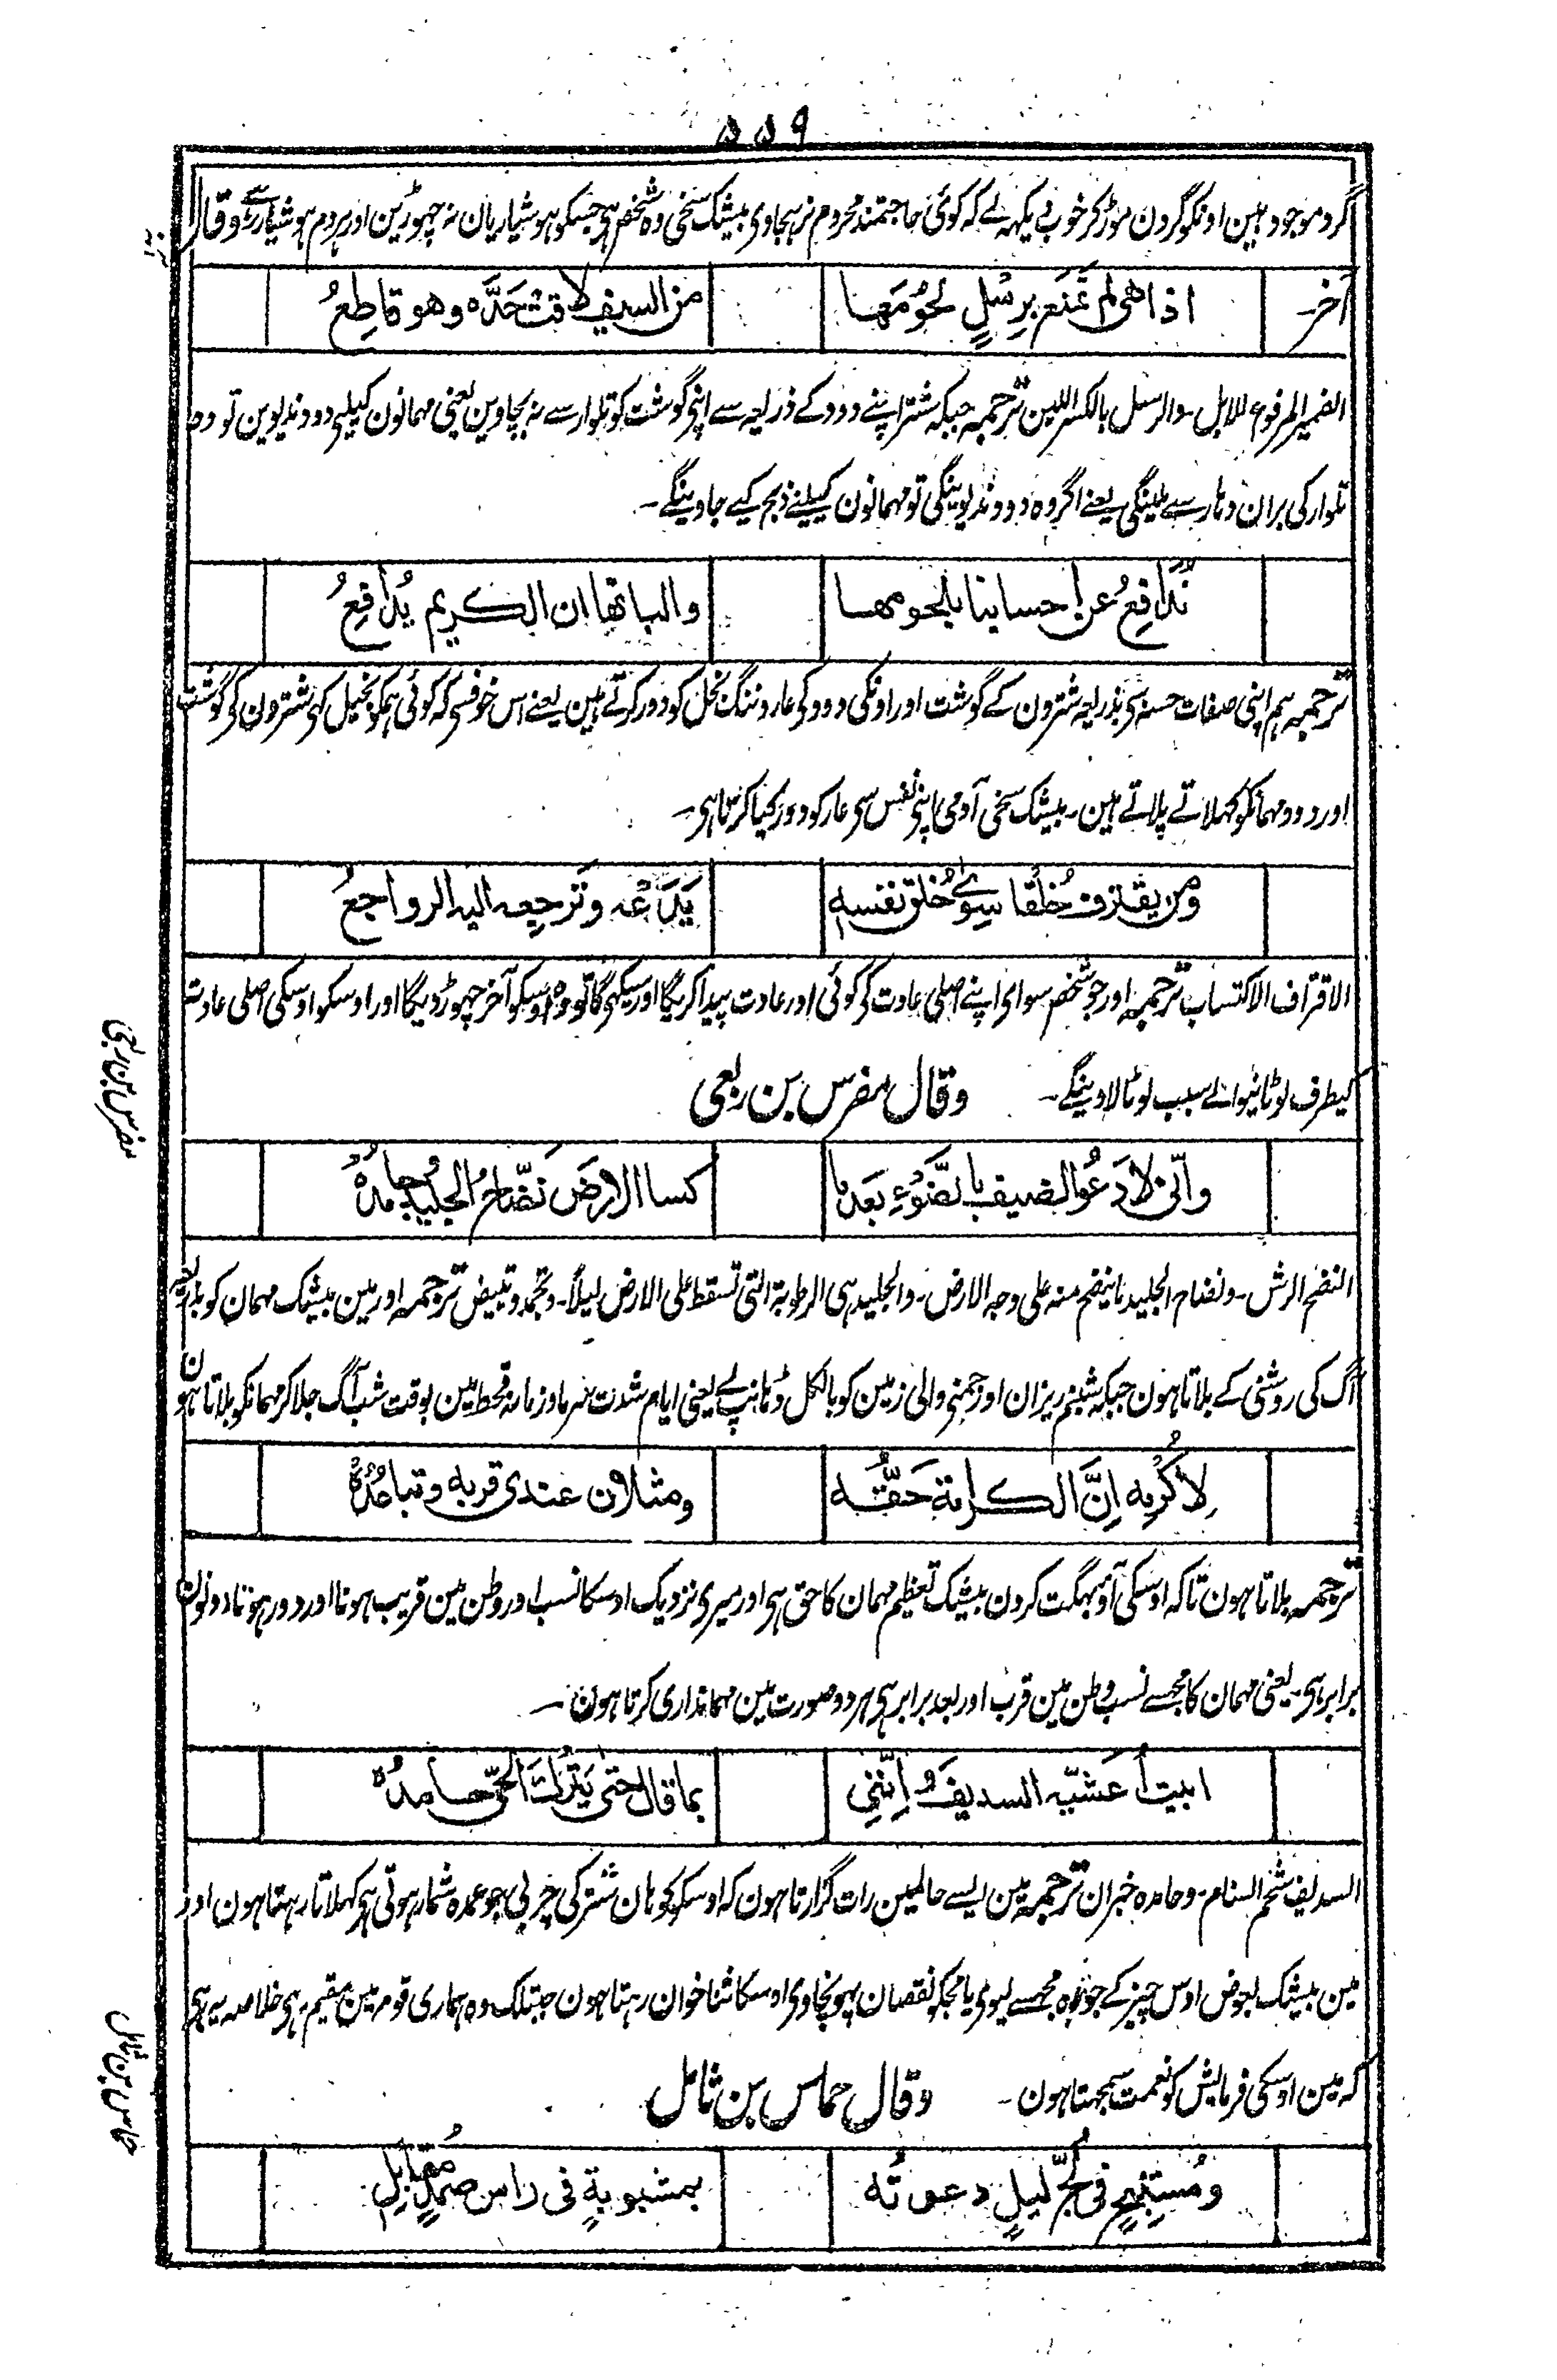 ۵۵۹
گرد موجود ہین اونکو گردن موڑ کر خوب دیکہہ لے کہ کوئی حاجتمند محروم نرہجاوی بیشک سخی وہ شخص ہی جسکو ہوشیاریان نہ چہوڑین اور ہردم ہوشیار رہے وقال
آخر اذا هی لم تَمنَع بِرِسْلٍ لحُومَها من السیفِ لاقت حَدَّه وهو قاطِعُ
الضمیر المرفوع للابل۔ والرسل بالکسر اللبن ترجمہ جبکہ شتر اپنے دودہ کے ذریعہ سے اپنی گوشت کو تلوار سے نہ بچاوین یعنی مہمانون کیلیے دودہ ندیوین تو وہ
تلوار کی بران دہار سے ملینگی یعنے اگر وہ دودہ ندیوینگی تو مہمانون کیلیے ذبح کیے جاوینگے۔
نُدَافِعُ عن احسابنا بلحومها والبانها ان الکریم یُدَافِعُ
ترجمہ ہم اپنی صفات حسنہ سی بذریعہ شترون کے گوشت اور اونکی دودہ کی عار و ننگ بخل کو دور کرتے ہین یعنے اس خوف سی کہ کوئی ہمکو بخیل کہی شترون کی گوشت
اور دودہ مہمانکو کہلاتے پلاتے ہین۔ بیشک سخی آدمی اپنی نفس سی عار کو دور کیا کرتا ہی۔
ومن یقترف خُلُقا سِوٰی خُلق نفسِهٖ یَدَعْه وتَرجِعه الیه الرواجعُ
الاقتراف الاکتساب ترجمہ اور جو شخص سوای اپنے اصلی عادت کی کوئی اور عادت پیدا کریگا اور سیکہی گا تو وہ اوسکو آخر چہوڑ دیگا اور اوسکو اوسکی اصلی عادت
کیطرف لوٹانیوالے سبب لوٹا لاوینگے۔ وقال مضرس بن ربعی
مضرس بن ربعی
وانّی لادعُو الضیف بالضَّوءِ بَعدما کسا الارضَ نَضّاحُ الجلیدِ وجامدُهْ
النضح الرش۔ ونضاح الجلید ما ینضح منہ علی وجہ الارض۔ والجلید ہی الرطوبۃ التی تسقط علی الارض لیلاً۔ وتجمد وتبیض ترجمہ اور مین بیشک مہمان کو بذریعہ
آگ کی روشنی کے بلاتا ہون جبکہ شبنم ریزان اور جمنی والی زمین کو بالکل ڈہانپ لے یعنی ایام شدت سرما و زمانہ قحط مین بوقت شب آگ جلا کر مہمانکو بلاتا ہون
لاُکْرِمه اِنَّ الکرامة حَقُّه ومثلان عندی قربه وتباعُدُهْ
ترجمہ بلاتا ہون تاکہ اوسکی آؤبہگت کرون بیشک تعظیم مہمان کا حق ہی اور میری نزدیک اوسکا نسب اور وطن مین قریب ہونا اور دور ہونا دونون
برابر ہی۔ یعنی مہمان کا مجہسے نسب وطن مین قرب اور بعد برابر ہی ہر دو صورت مین مہمانداری کرتا ہون۔
ابیت اُعَشّیه السدیفَ واِنَّنِی بما قال حتی یَترُكَ الحیَّ حامدُهْ
السدیف شحم السنام۔ وحامدہ خبر ان ترجمہ مین ایسے حالمین رات گزارتا ہون کہ اوسکو کوہان شتر کی چربی جو عمدہ شمار ہوتی ہی کہلاتا رہتا ہون اور
مین بیشک بعوض اوس چیز کے جو وہ مجہسے لیوی یا مجکو نقصان پہونچاوی اوسکا ثناخوان رہتا ہون جبتلک وہ ہماری قوم مین مقیم رہی خلاصہ یہ ہی
کہ مین اوسکی فرمایش کو نعمت سمجہتا ہون۔ وقال حماس بن ثامل
حماس بن ثامل
ومُستنبِحٍ فی لُجِّ لیلٍ دعوتُه بمشبوبةٍ فی راس صَمدٍ مُقابِلِ